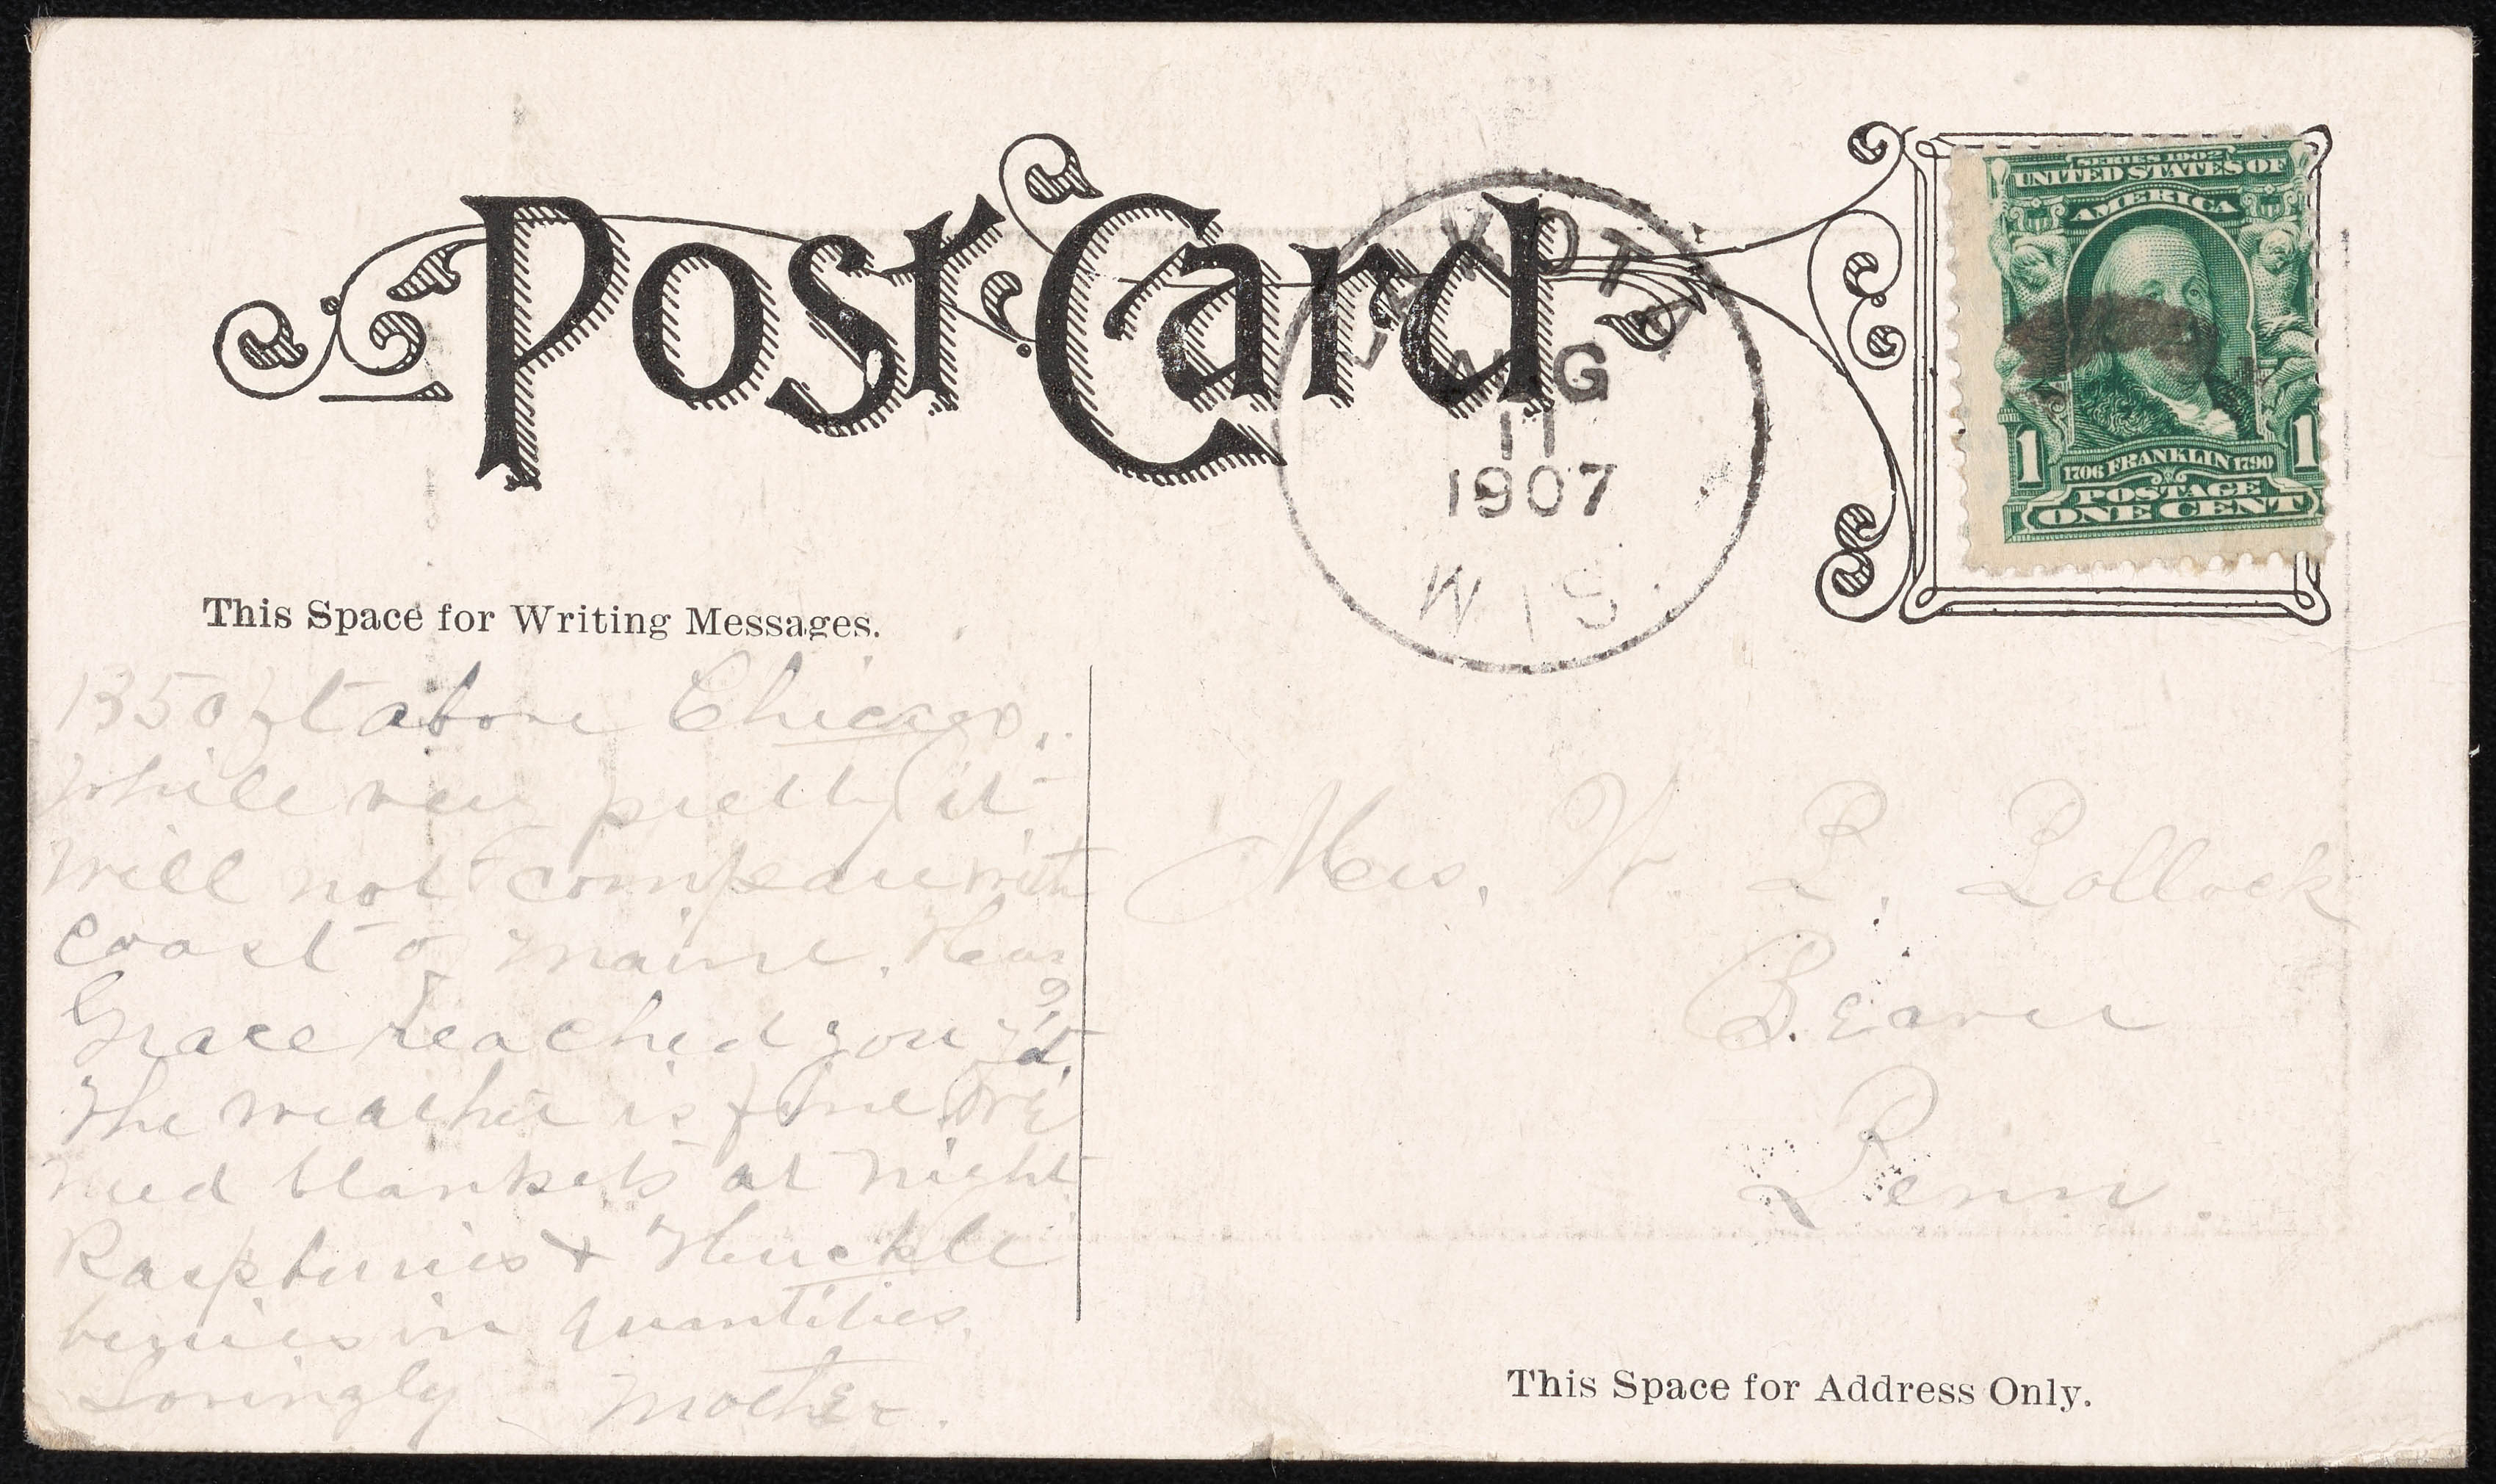 Post Card
DAKOTA
AUG
11
1907
WIS.
SERIES 1902
UNITED STATES OF
AMERICA
1 1706 FRANKLIN 1790 1
POSTAGE
ONE CENT
This Space for Writing Messages.
1350 ft above Chicago.
While very pretty it
will not compare with
coast of Maine. Has
Grace reached you yet?
The weather is fine. We
need blankets at night.
Raspberries & Huckle
berries in quantities.
Lovingly Mother.
Mrs. W. P. Pollock
Beaver
Penn.
This Space for Address Only.